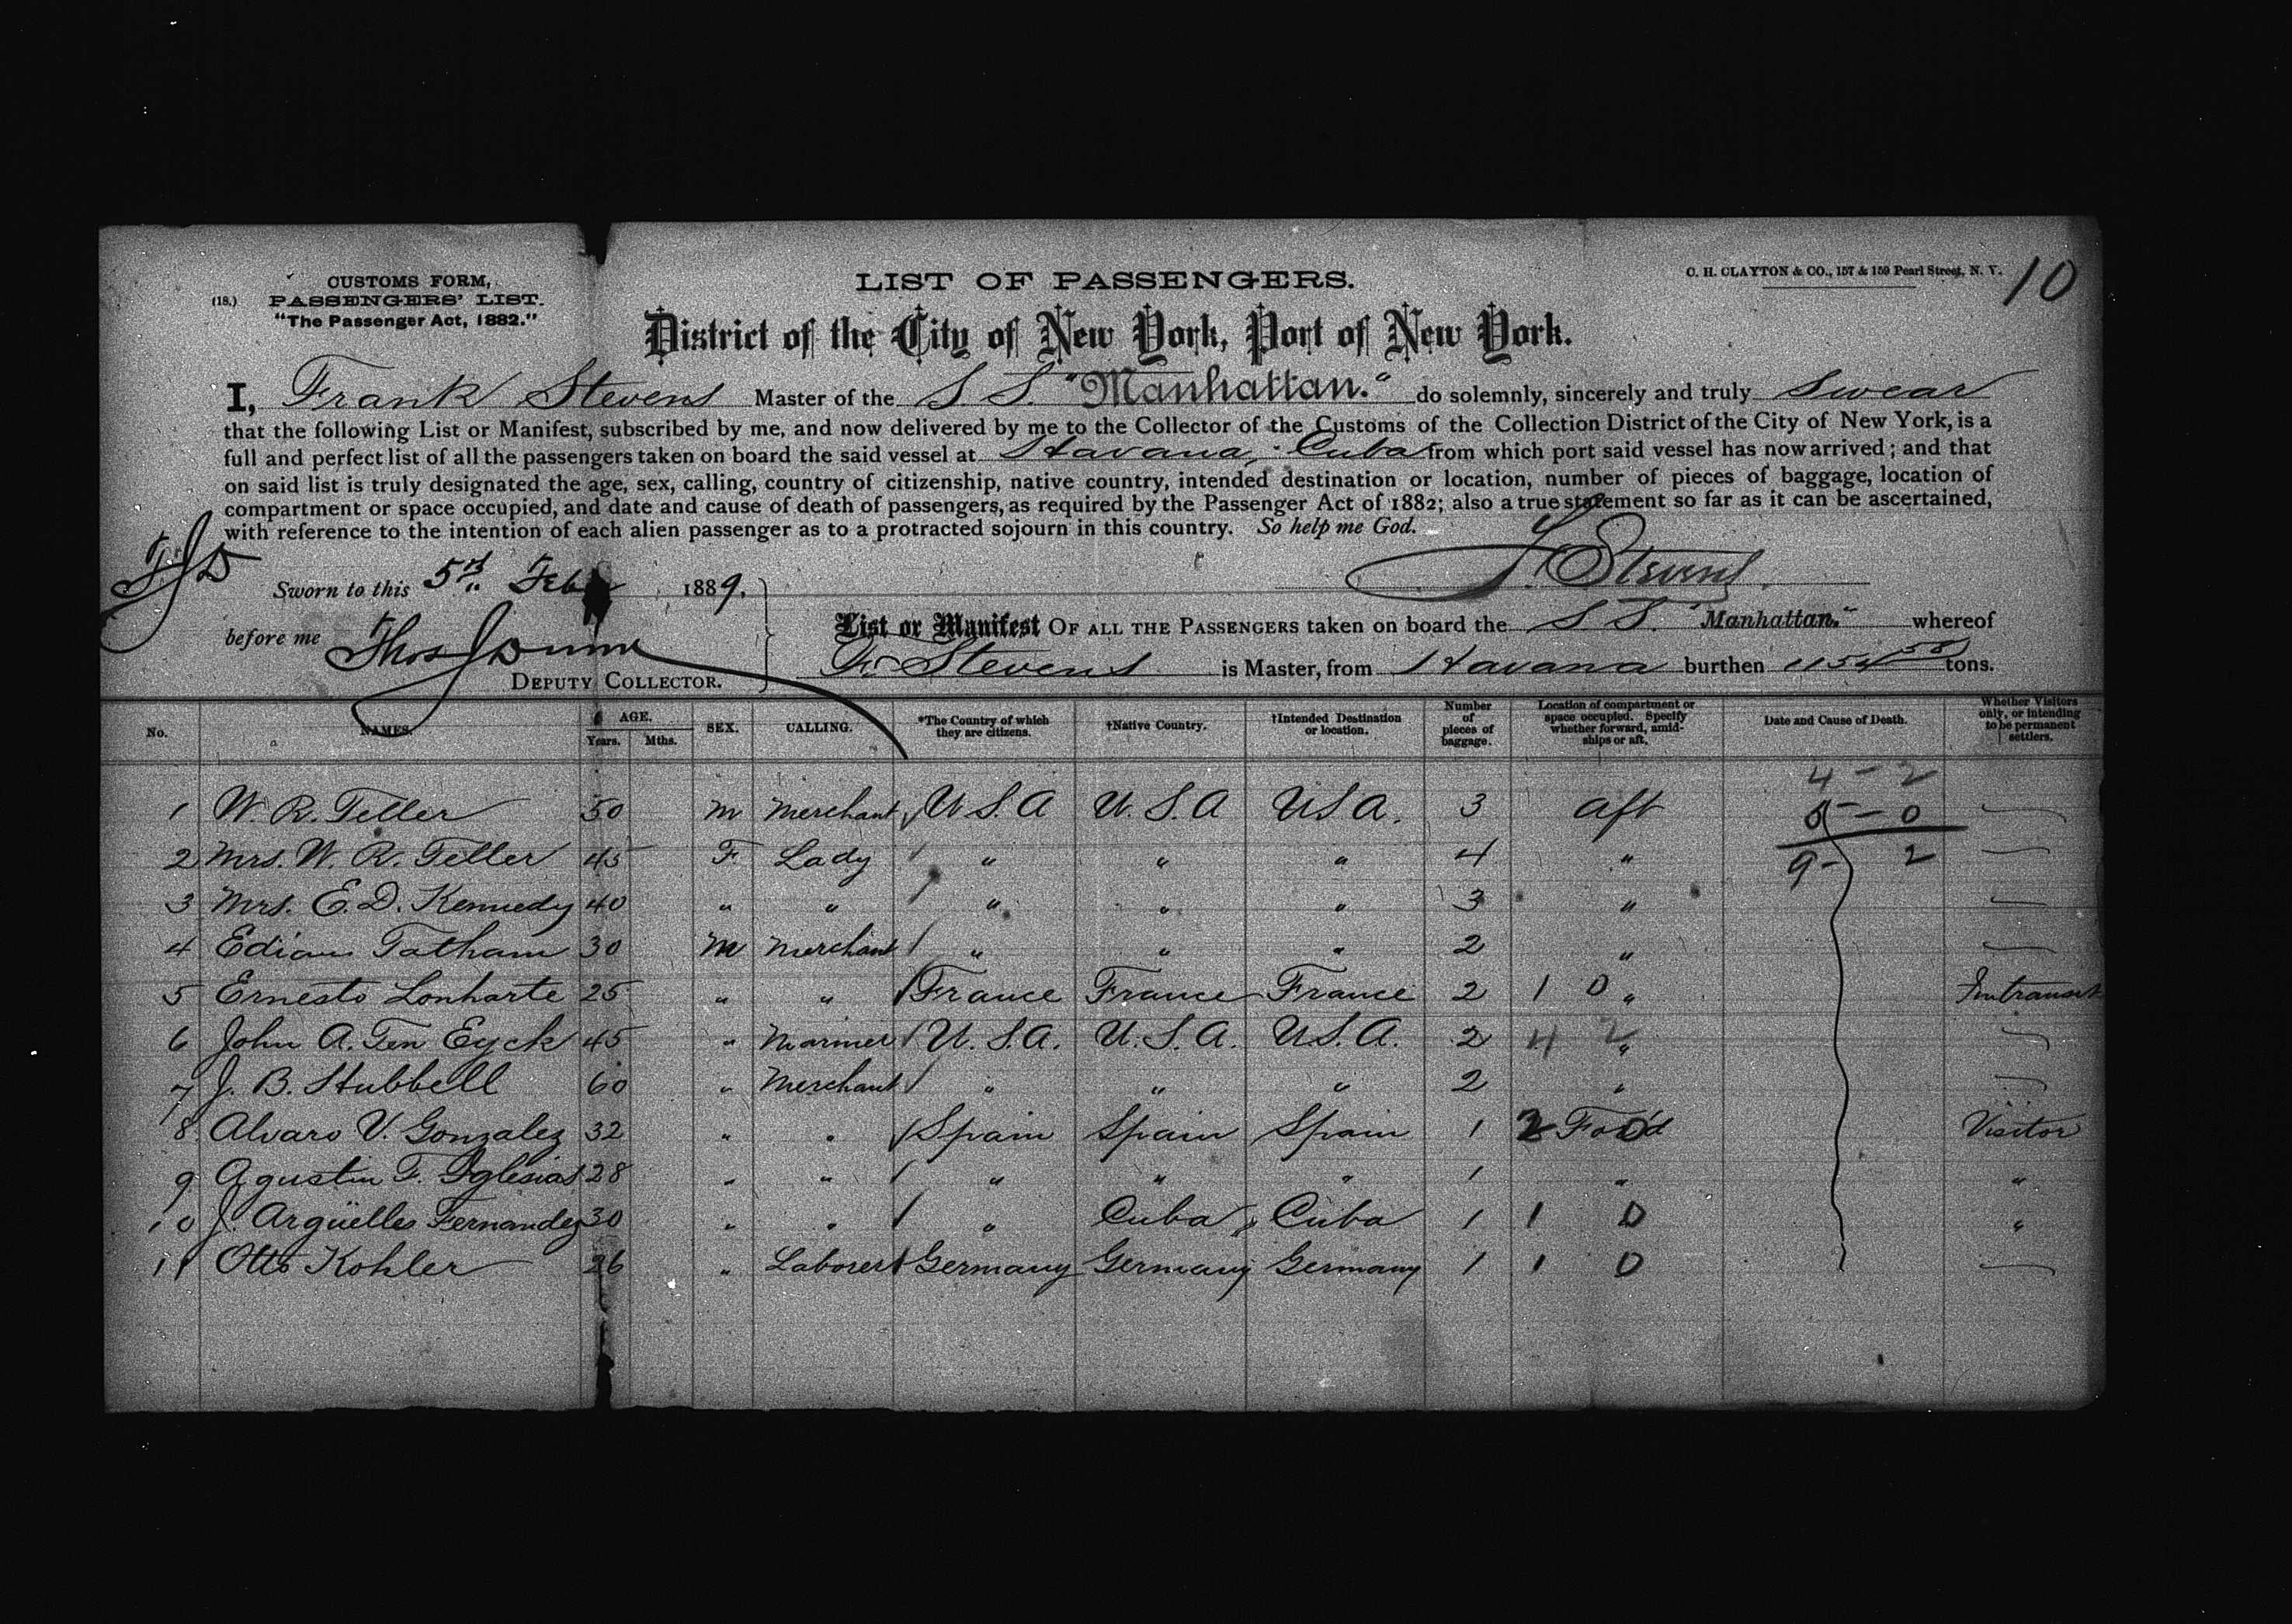 CUSTOMS FORM,
(18.) PASSENGERS' LIST.
"The Passenger Act, 1882."
LIST OF PASSENGERS.
C. H. CLAYTON & CO., 157 & 159 Pearl Street, N. Y.
10
District of the City of New York, Port of New York.
I, Frank Stevens Master of the S. S. "Manhattan." do solemnly, sincerely and truly Swear
that the following List or Manifest, subscribed by me, and now delivered by me to the Collector of the Customs of the Collection District of the City of New York, is a
full and perfect list of all the passengers taken on board the said vessel at Havana, Cuba from which port said vessel has now arrived; and that
on said list is truly designated the age, sex, calling, country of citizenship, native country, intended destination or location, number of pieces of baggage, location of
compartment or space occupied, and date and cause of death of passengers, as required by the Passenger Act of 1882; also a true statement so far as it can be ascertained,
with reference to the intention of each alien passenger as to a protracted sojourn in this country. So help me God.
TJD
F. Stevens
Sworn to this 5th Feb 1889.
before me Thos J Dunn
DEPUTY COLLECTOR.
List or Manifest OF ALL THE PASSENGERS taken on board the S S. "Manhattan." whereof
Fr. Stevens is Master, from Havana burthen tons.
No. NAMES. AGE. Years. Mths. SEX. CALLING. *The Country of which they are citizens. †Native Country. †Intended Destination or location. Number of pieces of baggage. Location of compartment or space occupied. Specify whether forward, amidships or aft. Date and Cause of Death. Whether Visitors only, or intending to be permanent settlers.
4 - 2
1 W. R. Teller 50 M Merchant U.S.A U.S.A USA. 3 aft 5 - 0 —
2 Mrs. W. R. Teller 45 F Lady " " " 4 " 9 - 2 —
3 Mrs. E. D. Kennedy 40 " " " " " 3 " —
4 Tatham 30 M Merchant " " " 2 " —
5 Ernesto Lonharte 25 " " France France France 2 1 0 " Intransit
6 John A. Ten Eyck 45 " Mariner U.S.A. U.S.A. U.S.A. 2 4 2 " —
7 J. B. Hubbell 60 " Merchant " " " 2 " —
8 Alvaro V. Gonzalez 32 " " Spain Spain Spain 1 2 For'd 0 Visitor
9 Agustin F. Iglesias 28 " " " " " 1 " "
10 J. Argüelles Fernandez 30 " " " Cuba Cuba 1 1 0 "
11 Otto Kohler 26 " Laborer Germany Germany Germany 1 1 0 —